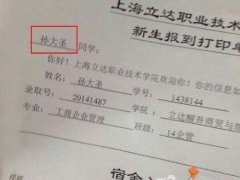 上海立达职业技术
新生报到打印单
孙大圣 同学:
你好!上海立达职业技术学院欢迎你!你的信息如
姓名: 孙大圣 学号: 1438144
录取号: 20141487 学院: 立达
专业: 工商企业管理 班级: 14企管
宿舍